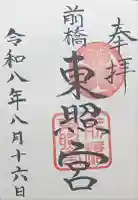 奉拝
前橋
東照宮
令和八年八月十六日